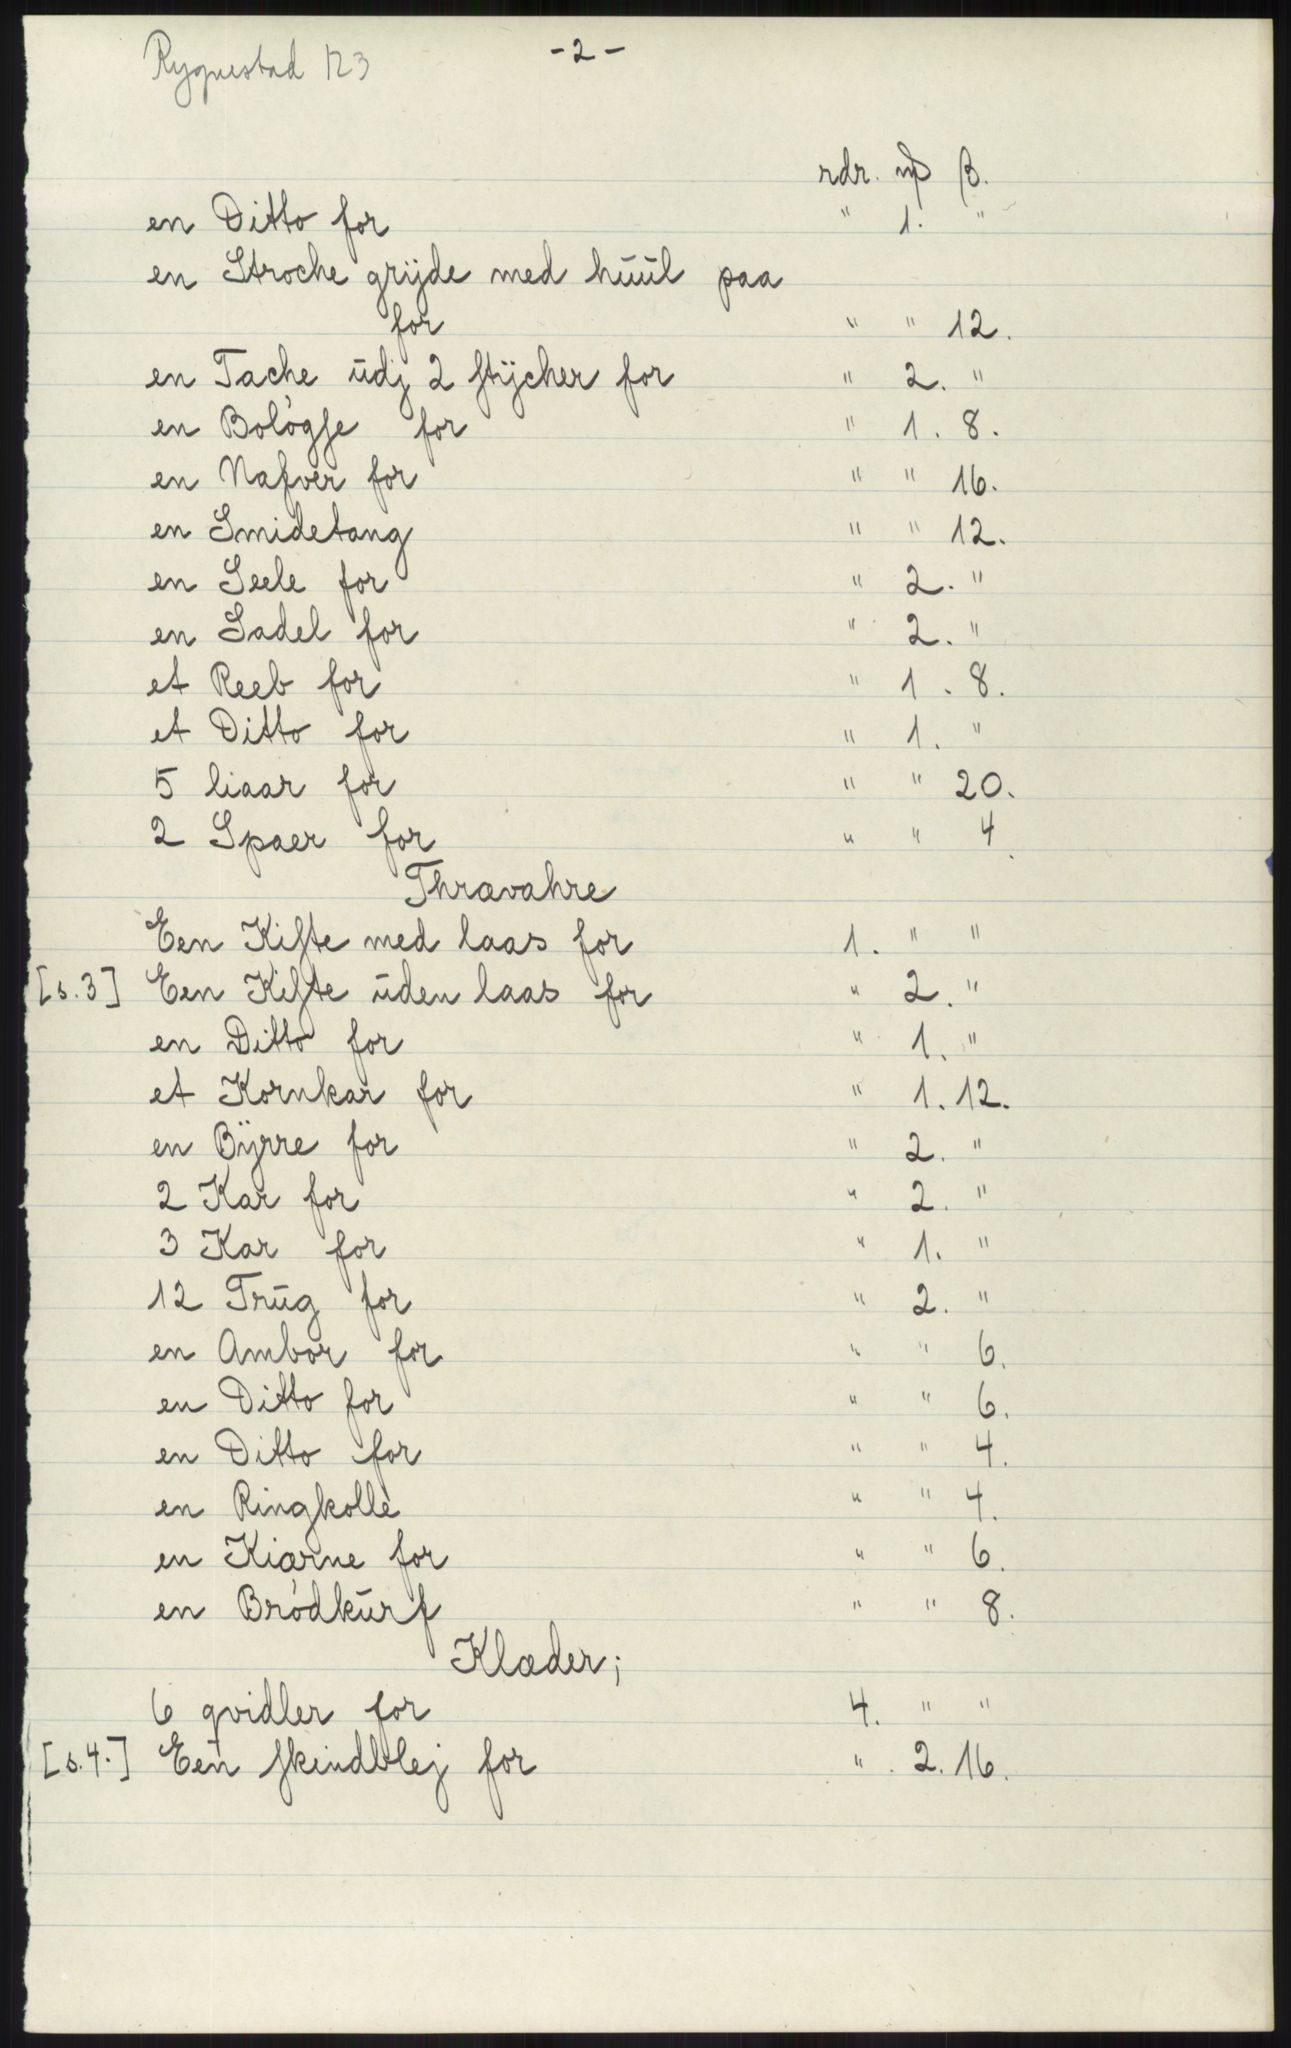 Rygnestad 123
-2-
rdr. m̶ ẞ.
en Ditto for " 1. "
en Stroche grÿde med hūūl paa
for " " 12.
en Tache ūdj 2 stÿcher for " 2. "
en Bológse for " 1. 8.
en Nafver for " " 16.
en Smidetang " " 12.
en Seele for " 2. "
en Sadel for " 2. "
et Reeb for " 1. 8.
et Ditto for " 1. "
5 liaar for " " 20.
2 Spaer for " " 4.
Thrævahre
Een Kiste med laas for 1. " "
[s.3] Een Kiste ūden laas for " 2. "
en Ditto for " 1. "
et Kornkar for " 1. 12.
en Bÿrre for " 2. "
2 Kar for " 2. "
3 Kar for " 1. "
12 Trūg for " 2. "
en Ambor for " " 6.
en Ditto for " " 6.
en Ditto for " " 4.
en Ringkolle " " 4.
en Kiærne for " " 6.
en Bródkūrf " " 8.
Klæder;
6 qvidler for 4. " "
[s.4.] Een skindblej for " 2. 16.